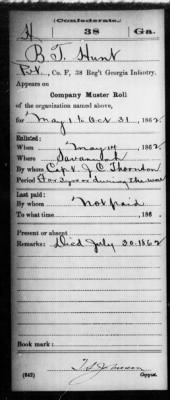 (Confederate.)
H 38 Ga.
B. T. Hunt
Pvt, Co. F, 38 Reg't Georgia Infantry.
Appears on
Company Muster Roll
of the organization named above,
for May 1 to Oct 31, 1862.
Enlisted:
When May 14, 1862.
Where Savannah
By whom Capt. J. C. Thornton
Period For 3 years or during the war
Last paid:
By whom Not paid
To what time , 186 .
Present or absent
Remarks: Died July 30. 1862
Book mark:
(642) Copyist.